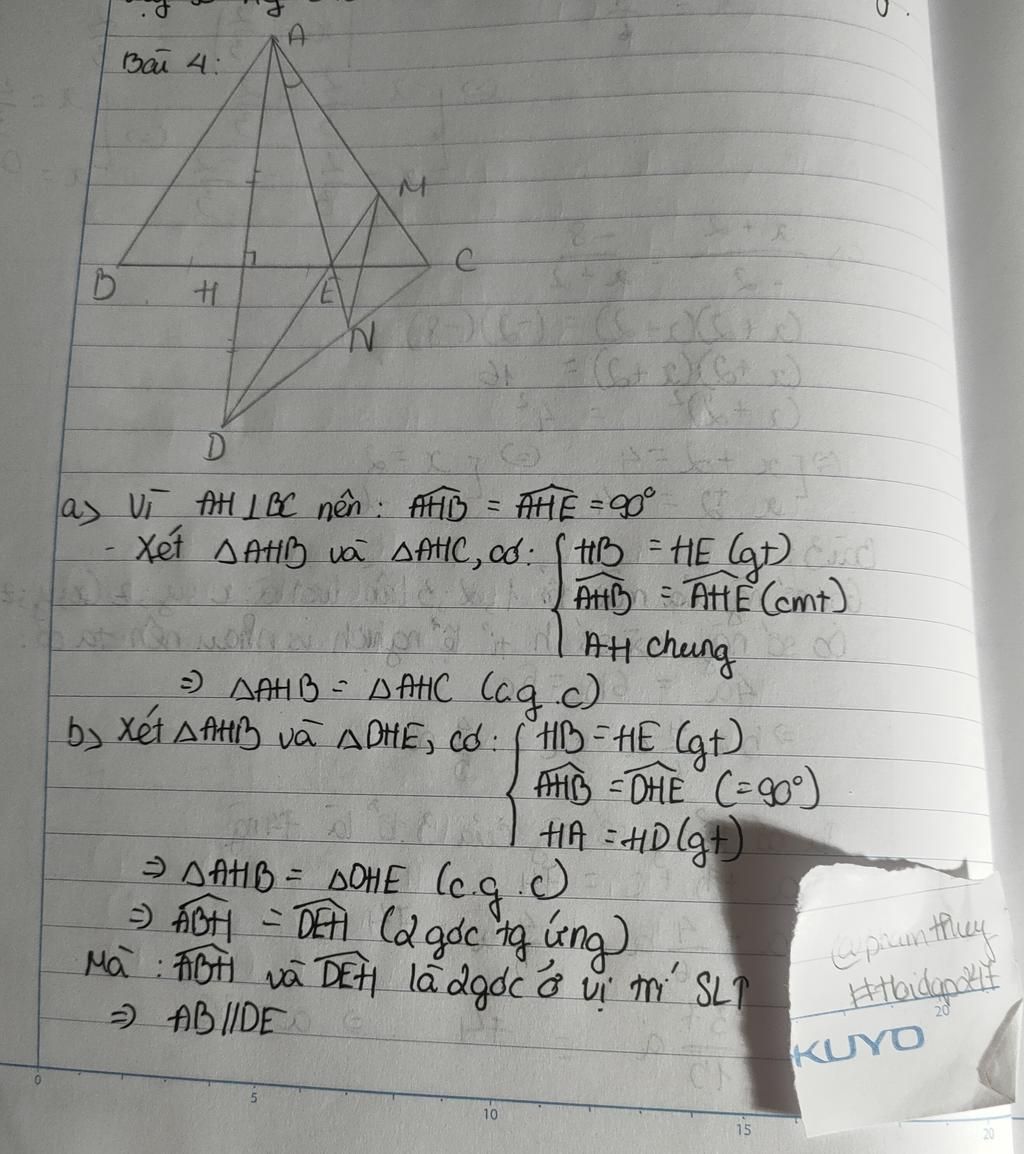 Bài 4:
A
M
B
H
E
C
N
D
a> Vì AH⊥BC nên: AHB = AHE = 90°
- Xét ΔAHB và ΔAHC, có: HB = HE (gt)
AHB = AHE (cmt)
AH chung
=> ΔAHB = ΔAHC (c.g.c)
b> Xét ΔAHB và ΔDHE, có: HB = HE (gt)
AHB = DHE (=90°)
HA = HD (gt)
=> ΔAHB = ΔDHE (c.g.c)
=> ABH = DEH (2 góc tg ứng)
Mà: ABH và DEH là 2 góc ở vị trí SLT
=> AB//DE
KUYO
0
5
10
15
20
20